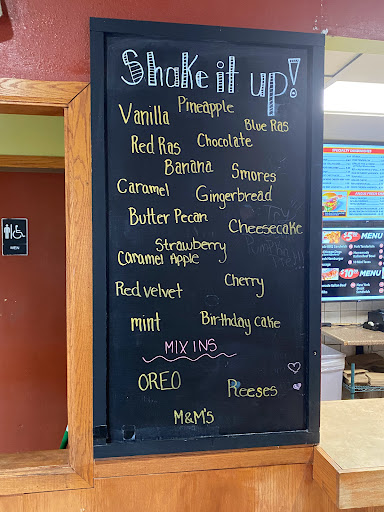 Shake it up!
Vanilla Pineapple
Blue Ras
Red Ras Chocolate
Banana Smores
Caramel Gingerbread
Butter Pecan Cheesecake
Strawberry
Caramel Apple
Cherry
Red velvet
mint Birthday cake
MIX INS
OREO Reeses
M&M'S
MEN
$5 MENU
$10 MENU